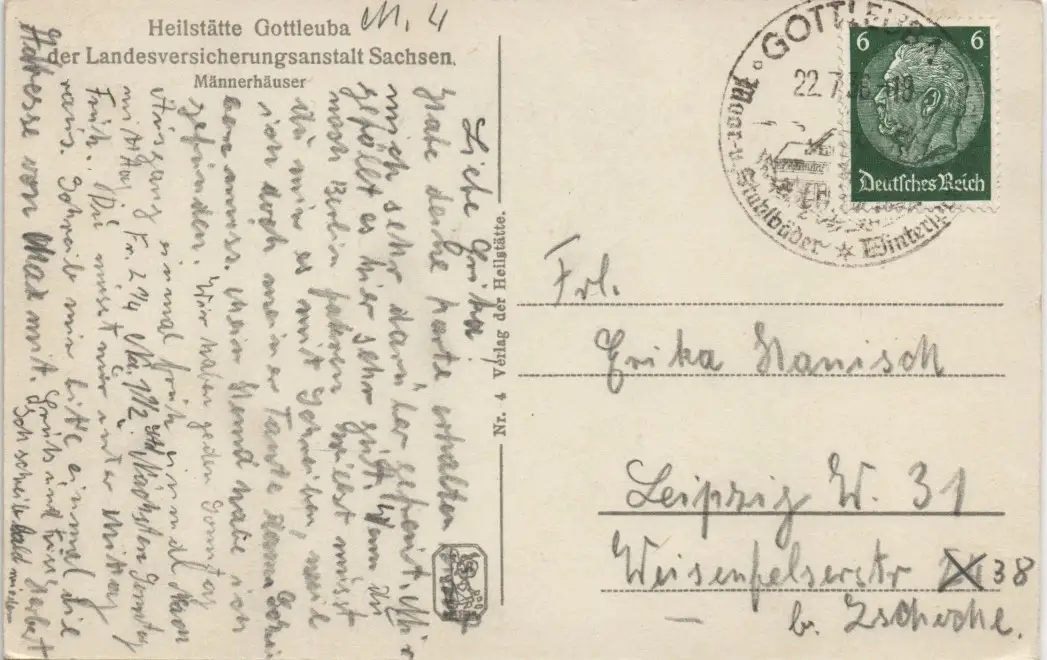 M. 4
Heilstätte Gottleuba
der Landesversicherungsanstalt Sachsen.
Männerhäuser
Liebe Erika
Habe deine Karte erhalten
mich sehr darüber gefreut. Mir
gefällt es hier sehr gut. Wenn du
nach Berlin fahren willst musst
du mir es mit schreiben, weil
ich doch meiner Tante
muss. Mein Hemd habe ich
gefunden. Wir haben jeden Sonntag
Ausgang einmal früh und
mittag Fr. 2/4 Nä. 1/2 Nächsten Sonntag
Früh. Du musst mir unter Mittag
raus. Schreib mir bitte einmal die
Adresse von Max mit. Gruß und Herbert
Schreibe bald wieder
Nr. 4 Verlag der Heilstätte.
GOTTLEUBA
22.7.36-18
Moor-u. Stahlbäder ★ Wintersp
6 6
Deutsches Reich
Frl.
Erika Hanisch
Leipzig W. 31
Weisenfelserstr 38
b. Zschoche.